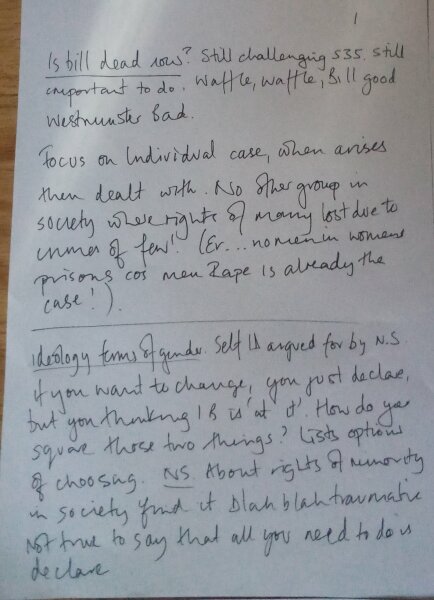 1
Is bill dead now? Still challenging S35. Still
important to do. Waffle, waffle, Bill good
Westminster Bad.
Focus on Individual case, when arises
then dealt with. No other group in
society where rights of many lost due to
crimes of few'. (Er... no men in womens
prisons cos men Rape is already the
case!).
Ideology terms of gender. Self ID argued for by N.S.
if you want to change, you just declare,
but you thinking IB is 'at it'. How do you
square those two things? Lists options
of choosing. NS. About rights of minority
in society find it Blah blah traumatic
Not true to say that all you need to do is
declare